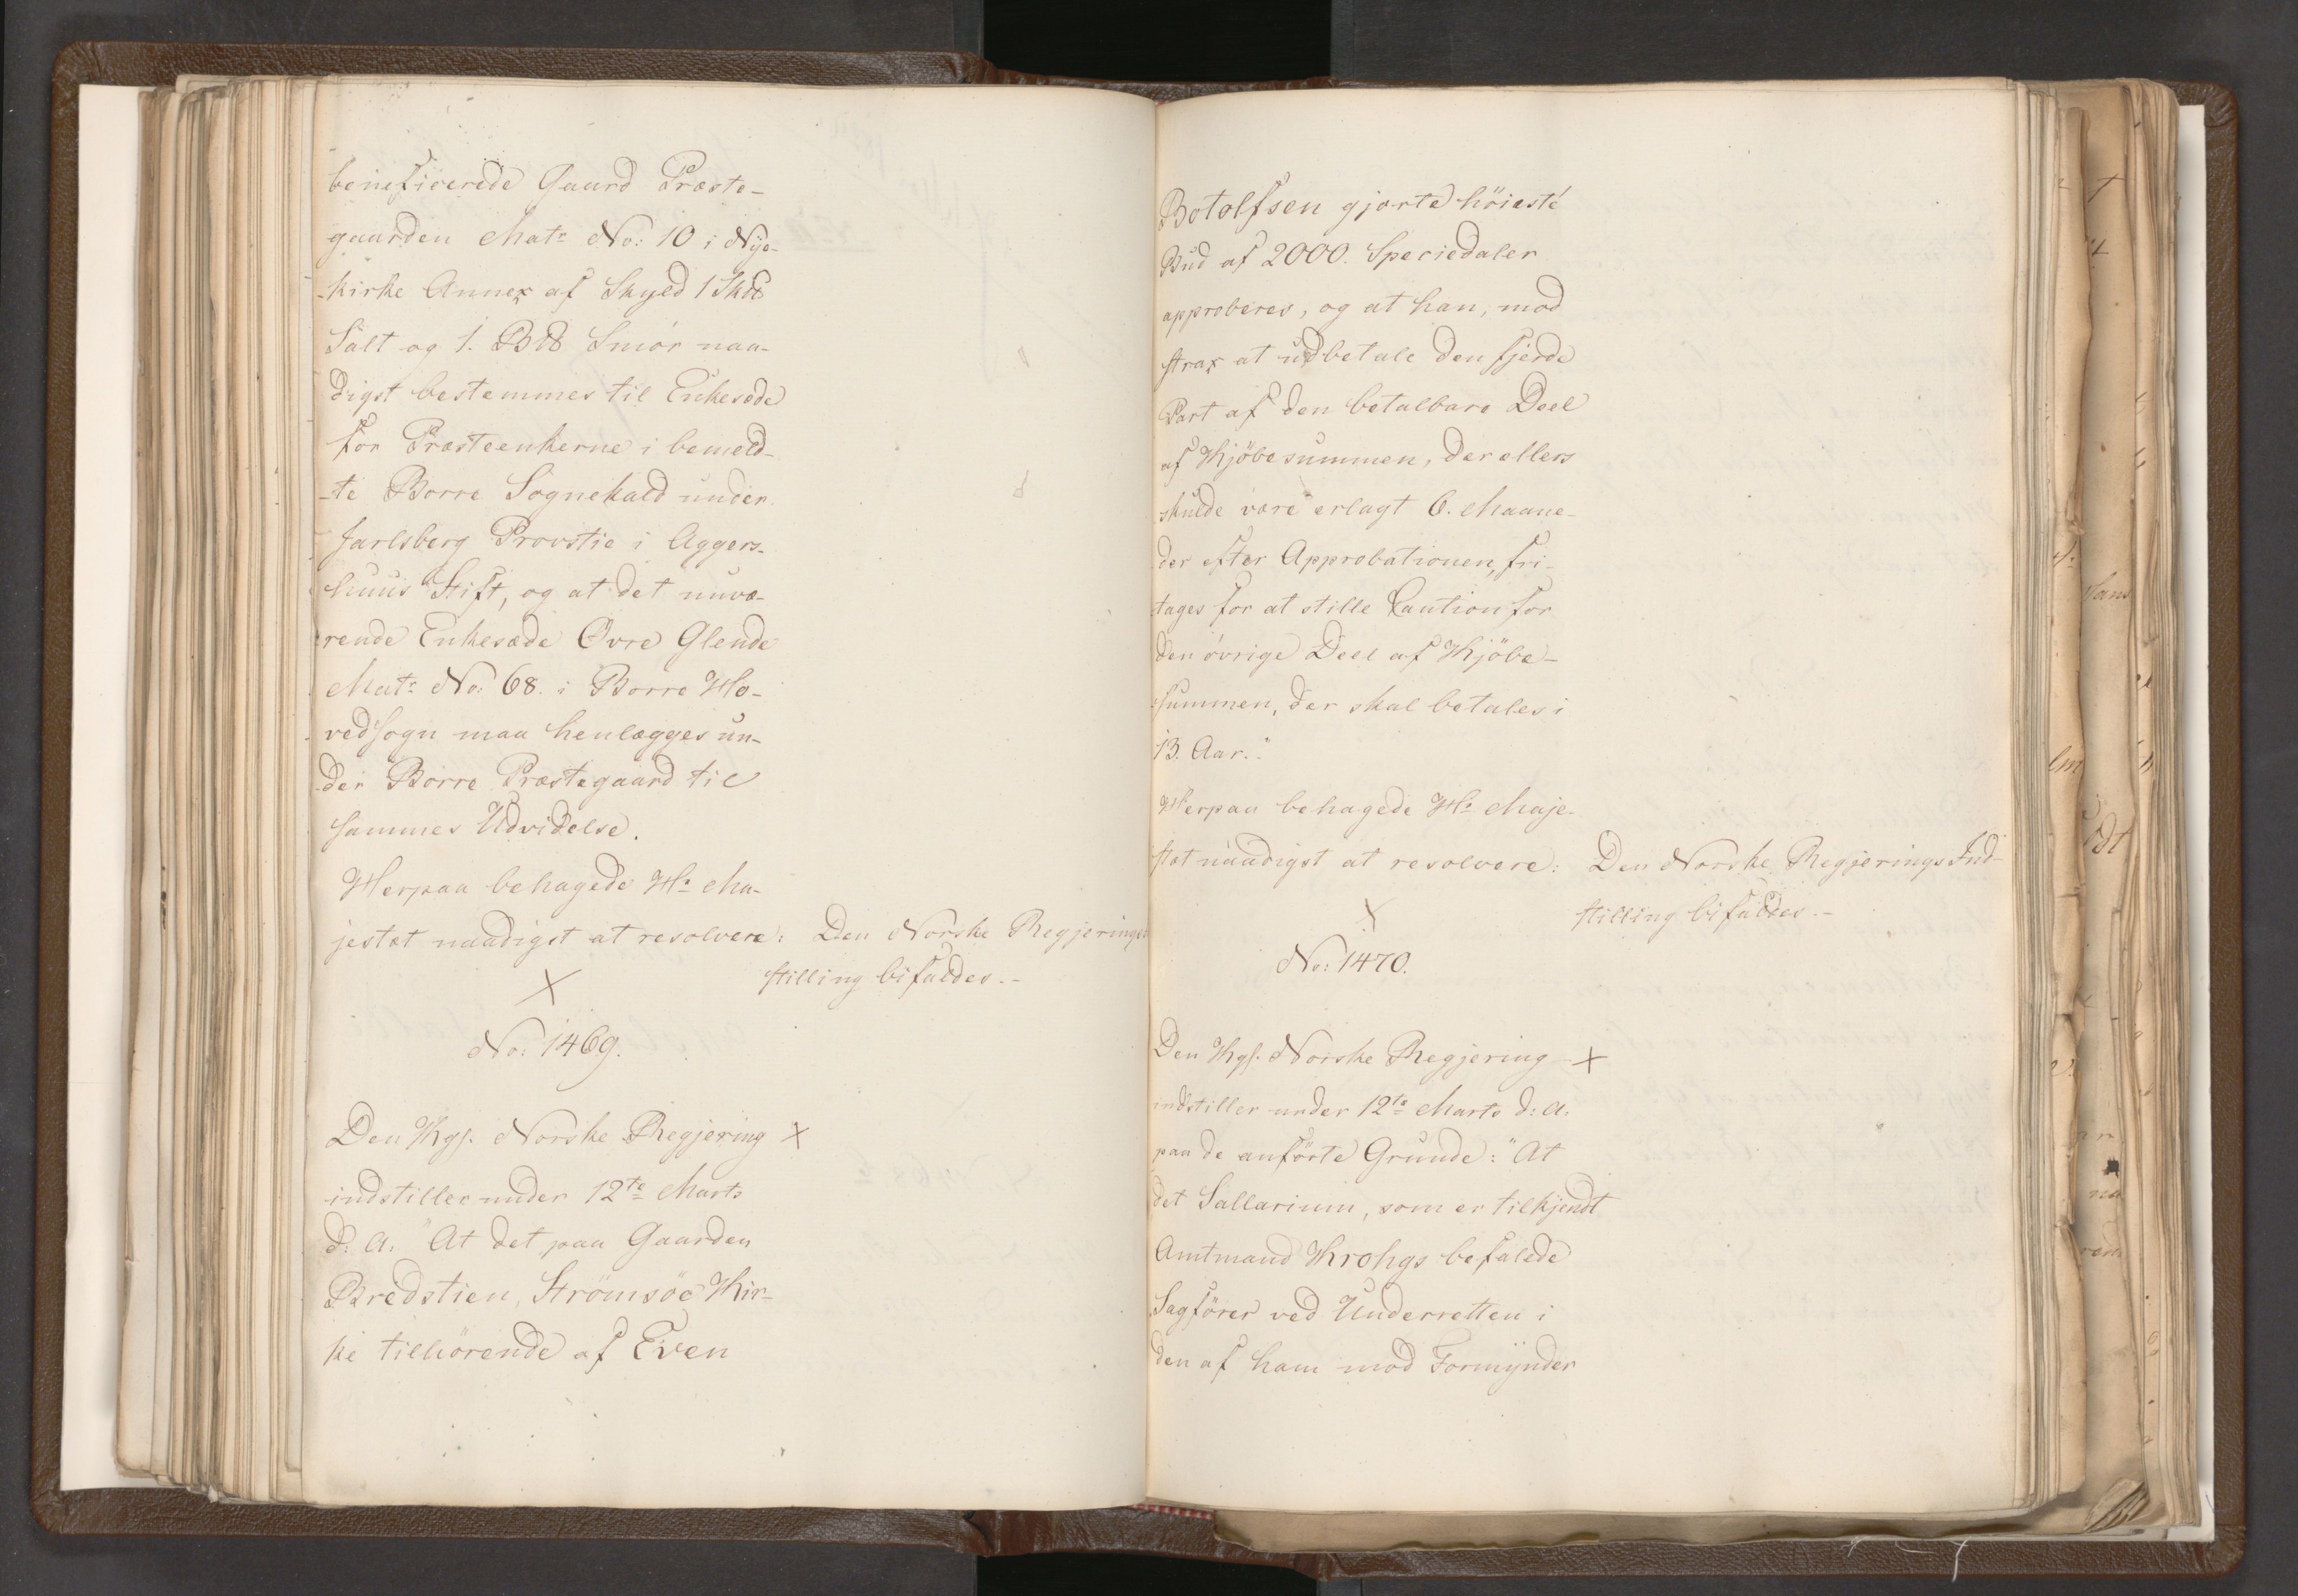 beneficerede Gaard Præste-
gaarden Matr No: 10 i Nye-
kirke Annex af Skyld 1 Sk℔
Salt og 1. B℔ Smör naa-
digst bestemmes til Enkesæde
for Præsteenkerne i bemeld-
-te Borre Sognekald under
Jarlsberg Provstie i Aggers-
huus Stift, og at det nuvæ-
rende Enkesæde Ovre Glende
Matr No: 68. i Borre Ho-
vedsogn maa henlægges un-
der Borre Præstegaard til
sammes Udvidelse.
Herpaa behagede Hs Ma-
jestæt naadigst at resolvere: Den Norske Regjerings
stilling bifaldes.-
No: 1469.
Den Kgl. Norske Regjering
indstiller under 12te Marts
d: A: "At det paa Gaarden
Bredstien, Strömsöe Kir-
ke tilhörende af Even
Botolfsen gjorte höieste
Bud af 2000. Speciedaler
approberes, og at han, mod
strax at udbetale den fjerde
Part af den betalbare Deel
af Kjöbesummen, der ellers
skulde være erlagt 6. Maane-
der efter Approbationen, fri-
tages for at stille Caution for
den övrige Deel af Kjöbe-
summen, der skal betales i
13. Aar."
Herpaa behagede Hs Maje-
stæt naadigst at resolvere: Den Norske Regjerings Ind-
stilling bifaldes.-
No: 1470.
Den Kgl. Norske Regjering
indstiller under 12te Marts d: A:
paa de anförte Grunde: "At
det Sallarium, som er tilkjendt
Amtmand Krohgs befalede
Sagförer ved Underretten i
den af ham mod Formynder